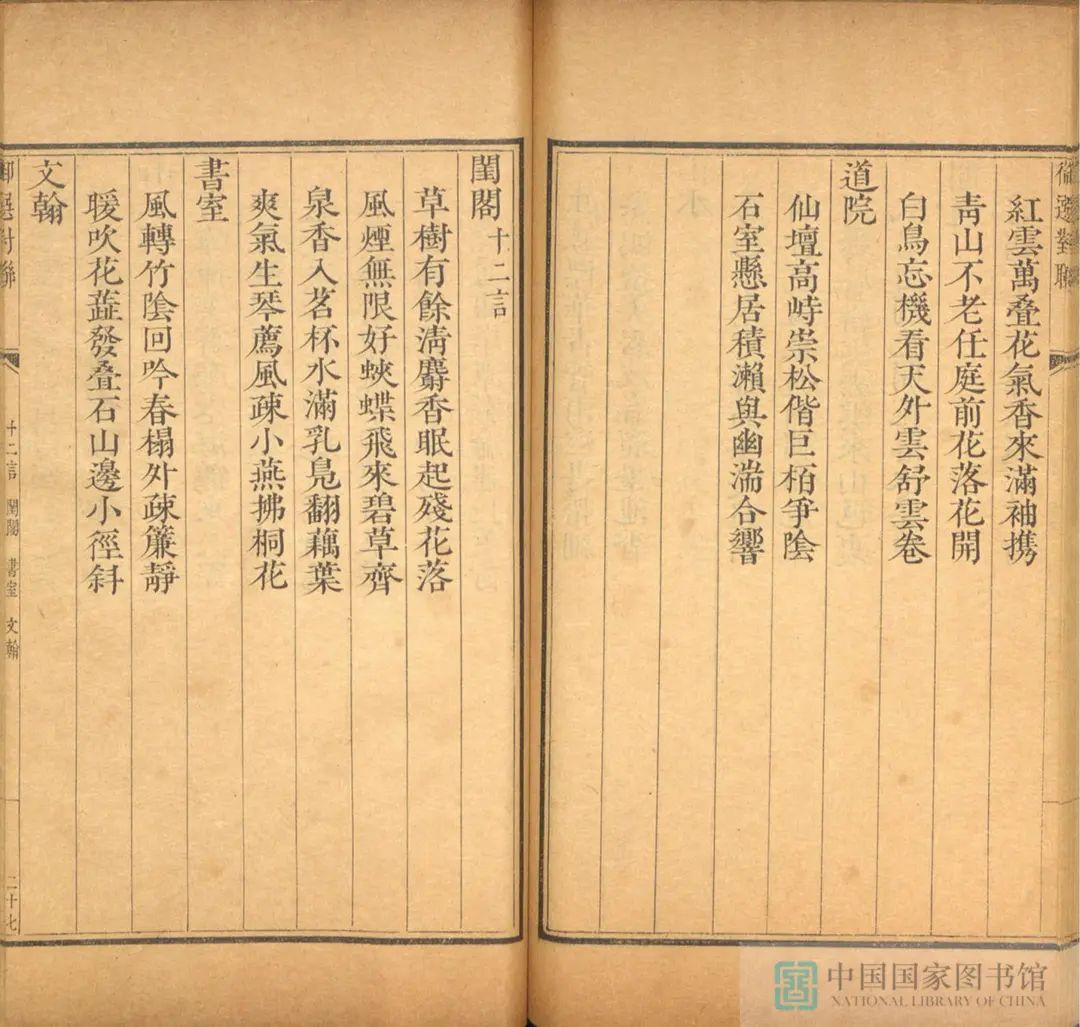 御選對聯
紅雲萬叠花氣香來滿袖携
靑山不老任庭前花落花開
白鳥忘機看天外雲舒雲卷
道院
仙壇高峙崇松偕巨栢爭陰
石室懸居積瀨與幽湍合響
閨閣 十二言
草樹有餘淸麝香眠起殘花落
風煙無限好蛺蝶飛來碧草齊
泉香入茗杯水滿乳鳧翻藕葉
爽氣生琴薦風疎小燕拂桐花
書室
風轉竹陰回吟春榻外疎簾靜
暖吹花蕋發叠石山邊小徑斜
文翰
御選對聯
十二言 閨閣 書室 文翰
二十七
中国国家图书馆
NATIONAL LIBRARY OF CHINA